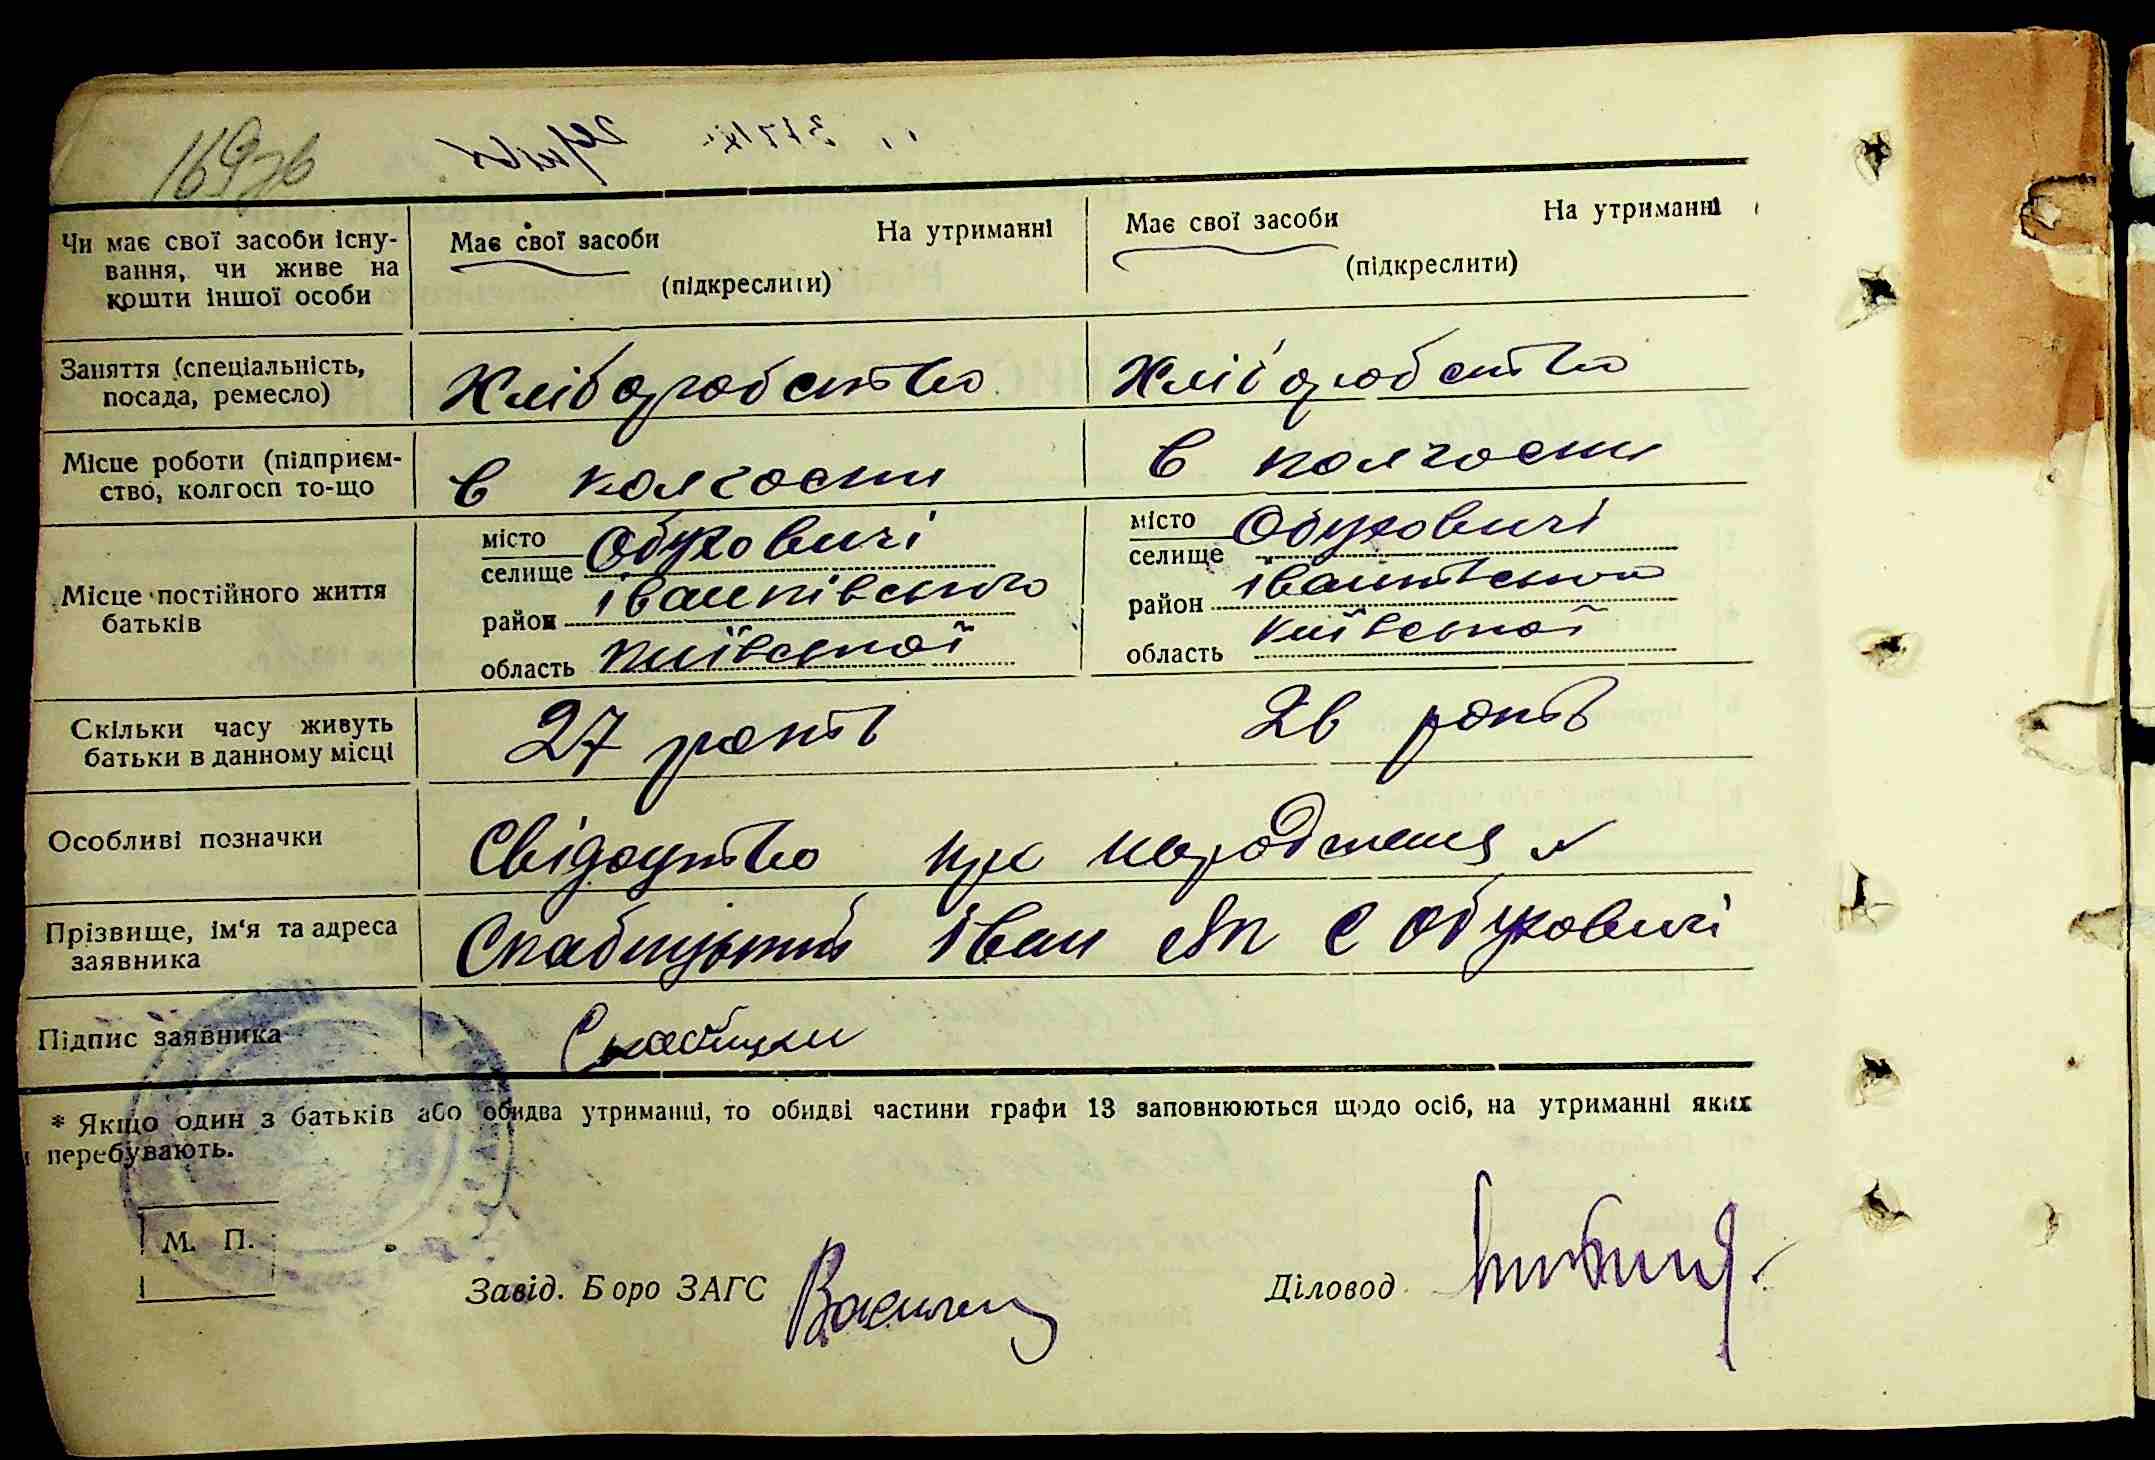 169зв
Чи має свої засоби існу-
вання, чи живе на
кошти іншої особи
Має свої засоби На утриманні
(підкреслити)
Має свої засоби На утриманні
(підкреслити)
Заняття (спеціальність,
посада, ремесло)
Хліборобство
Хліборобство
Місце роботи (підприєм-
ство, колгосп то-що
в колгоспі
в колгоспі
Місце постійного життя
батьків
місто
селище Обуховичі
район Іванківського
область Київської
місто
селище Обуховичі
район Іванківського
область Київської
Скільки часу живуть
батьки в данному місці
27 років
26 років
Особливі позначки
Свідоцтво про народження
Прізвище, ім'я та адреса
заявника
Іван с Обуховичі
Підпис заявника
* Якщо один з батьків або обидва утриманці, то обидві частини графи 13 заповнюються щодо осіб, на утриманні яких
перебувають.
М. П.
Завід. Бюро ЗАГС
Діловод